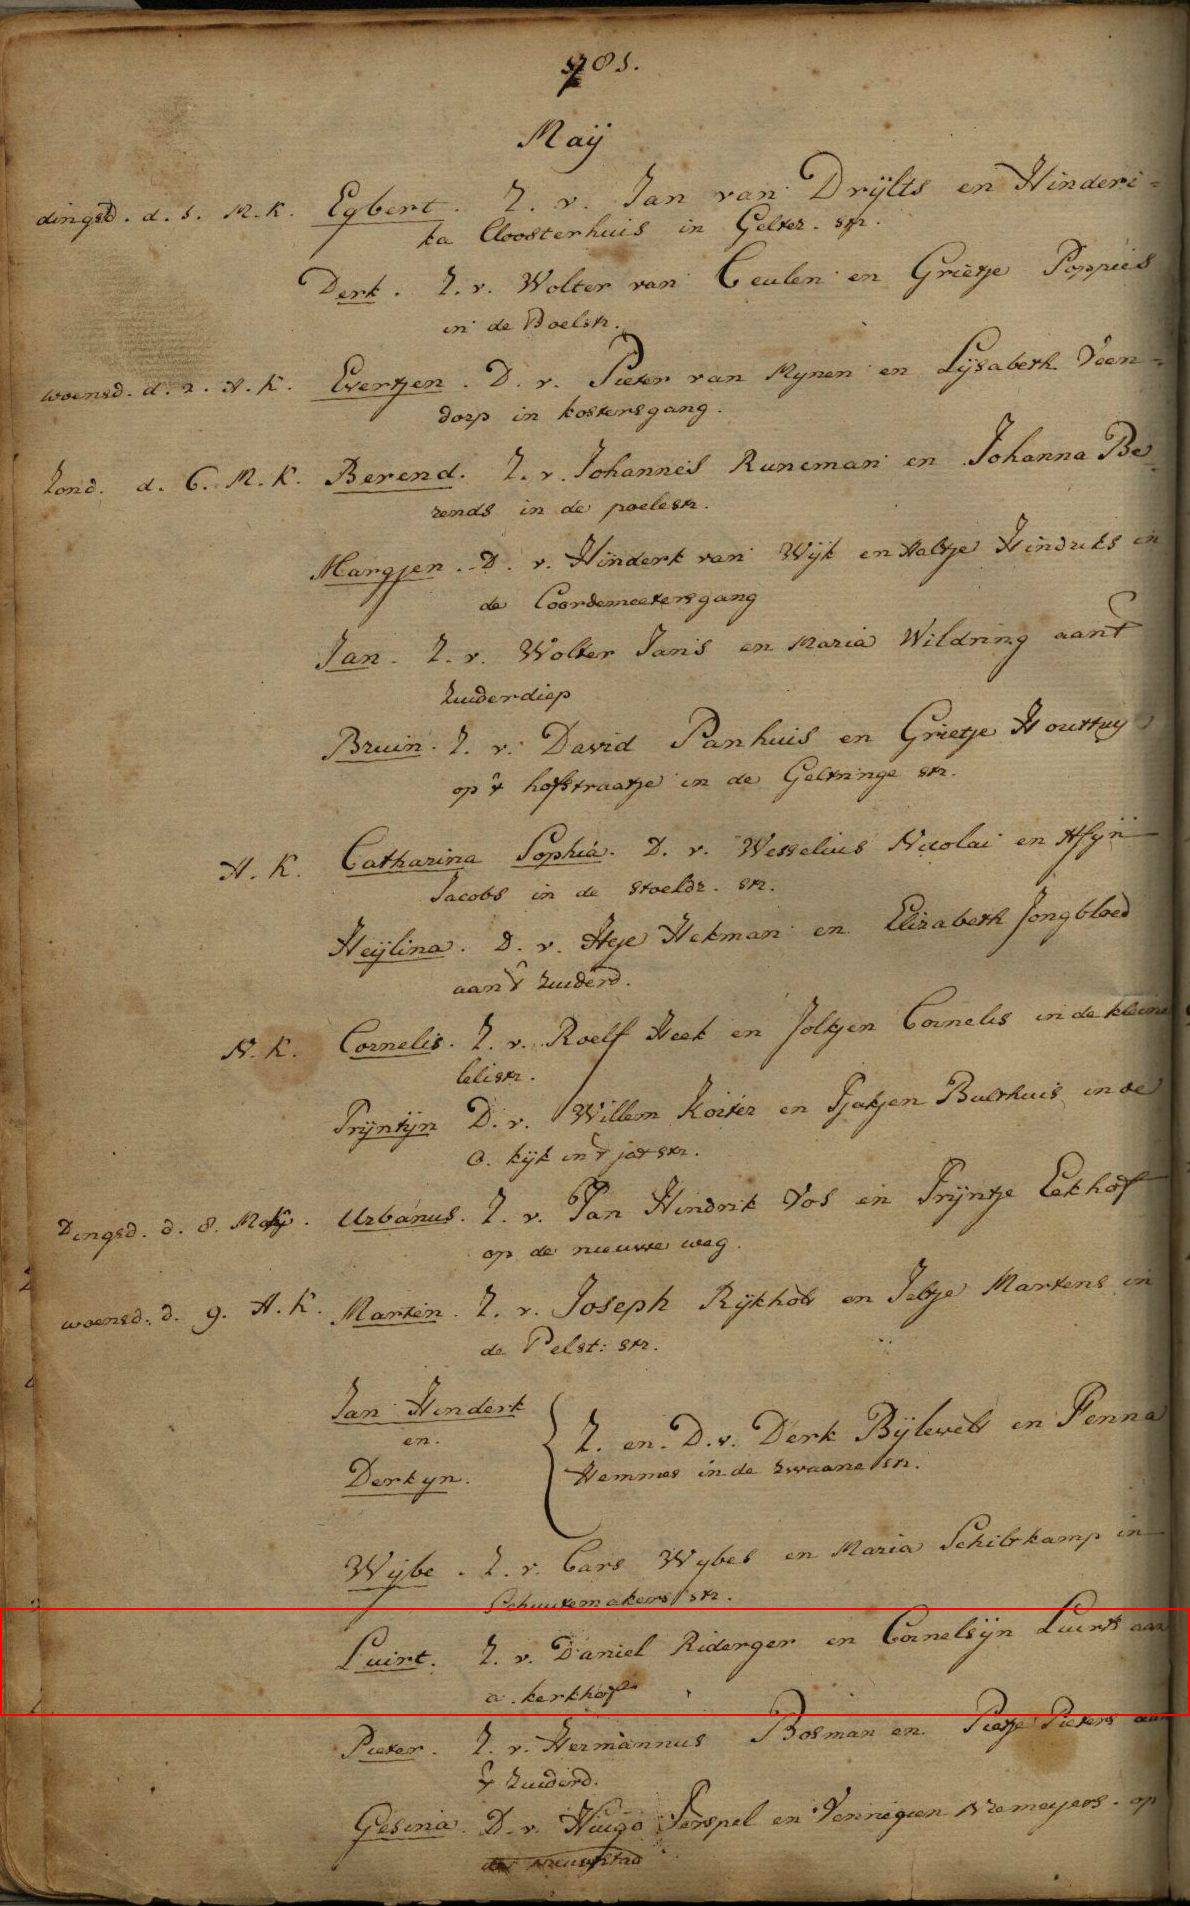 1781.
Maij
dingsd. d. 1. M. K. Egbert. Z. v. Jan van Drijlts en Hinderi-
ka Cloosterhuis in Gelker. str.
Derk. Z. v. Wolter van Ceulen en Grietje Poppies
in de Poelstr.
woensd. d. 2. A. K. Evertjen. D. v. Pieter van Mynen en Lijsabeth Veen-
dorp in kostersgang.
Zond. d. 6. M. K. Berend. Z. v. Johannes Runeman en Johanna Be
rends in de poelestr.
Margjen. D. v. Hinderk van Wijk en Aaltje Hindriks in
de Coordemeetersgang
Jan. Z. v. Wolter Jans en Maria Wildring aan t
Zuiderdiep
Bruin. Z. v. David Panhuis en Grietje Houttuy
op 't hofstraatje in de Gelkinge str.
A. K. Catharina Sophia. D. v. Wesselius Nicolai en
Jacobs in de stoeldr. str.
Heijlina. D. v. Heje Hekman en Elizabeth Jongbloed
aan 't Zuiderd.
N. K. Cornelis. Z. v. Roelf Heek en Joltjen Cornelis in de kleine
leliestr.
Trijntijn D. v. Willem Koiter en Tjakjen Bulthuis in de
O. kijk in 't jat str.
Dingsd. d. 8. Maij. Urbanus. Z. v. Jan Hindrik Vos en Trijntje Eekhof
op de nieuwe weg.
woensd. d. 9. A. K. Marten. Z. v. Joseph Rijkholt en Jeltje Martens in
de Pelst: str.
Jan Hinderk
en
Derkyn.
Z. en D. v. Derk Bijlevelt en Fenna
Hemmes in de Zwaane str.
Wijbe. Z. v. Cars Wybes en Maria Schiltkamp in
Schuitemakers str.
Luirt. Z. v. Daniel Riderger en Cornelsijn Luirts aan
a. kerkhof
Pieter. Z. v. Hermannus Bosman en Pietje Pieters aan
't Zuiderd.
Gesina. D. v. Huigo Perspel en Vennegien Niemeyers. op
de nieuwstad